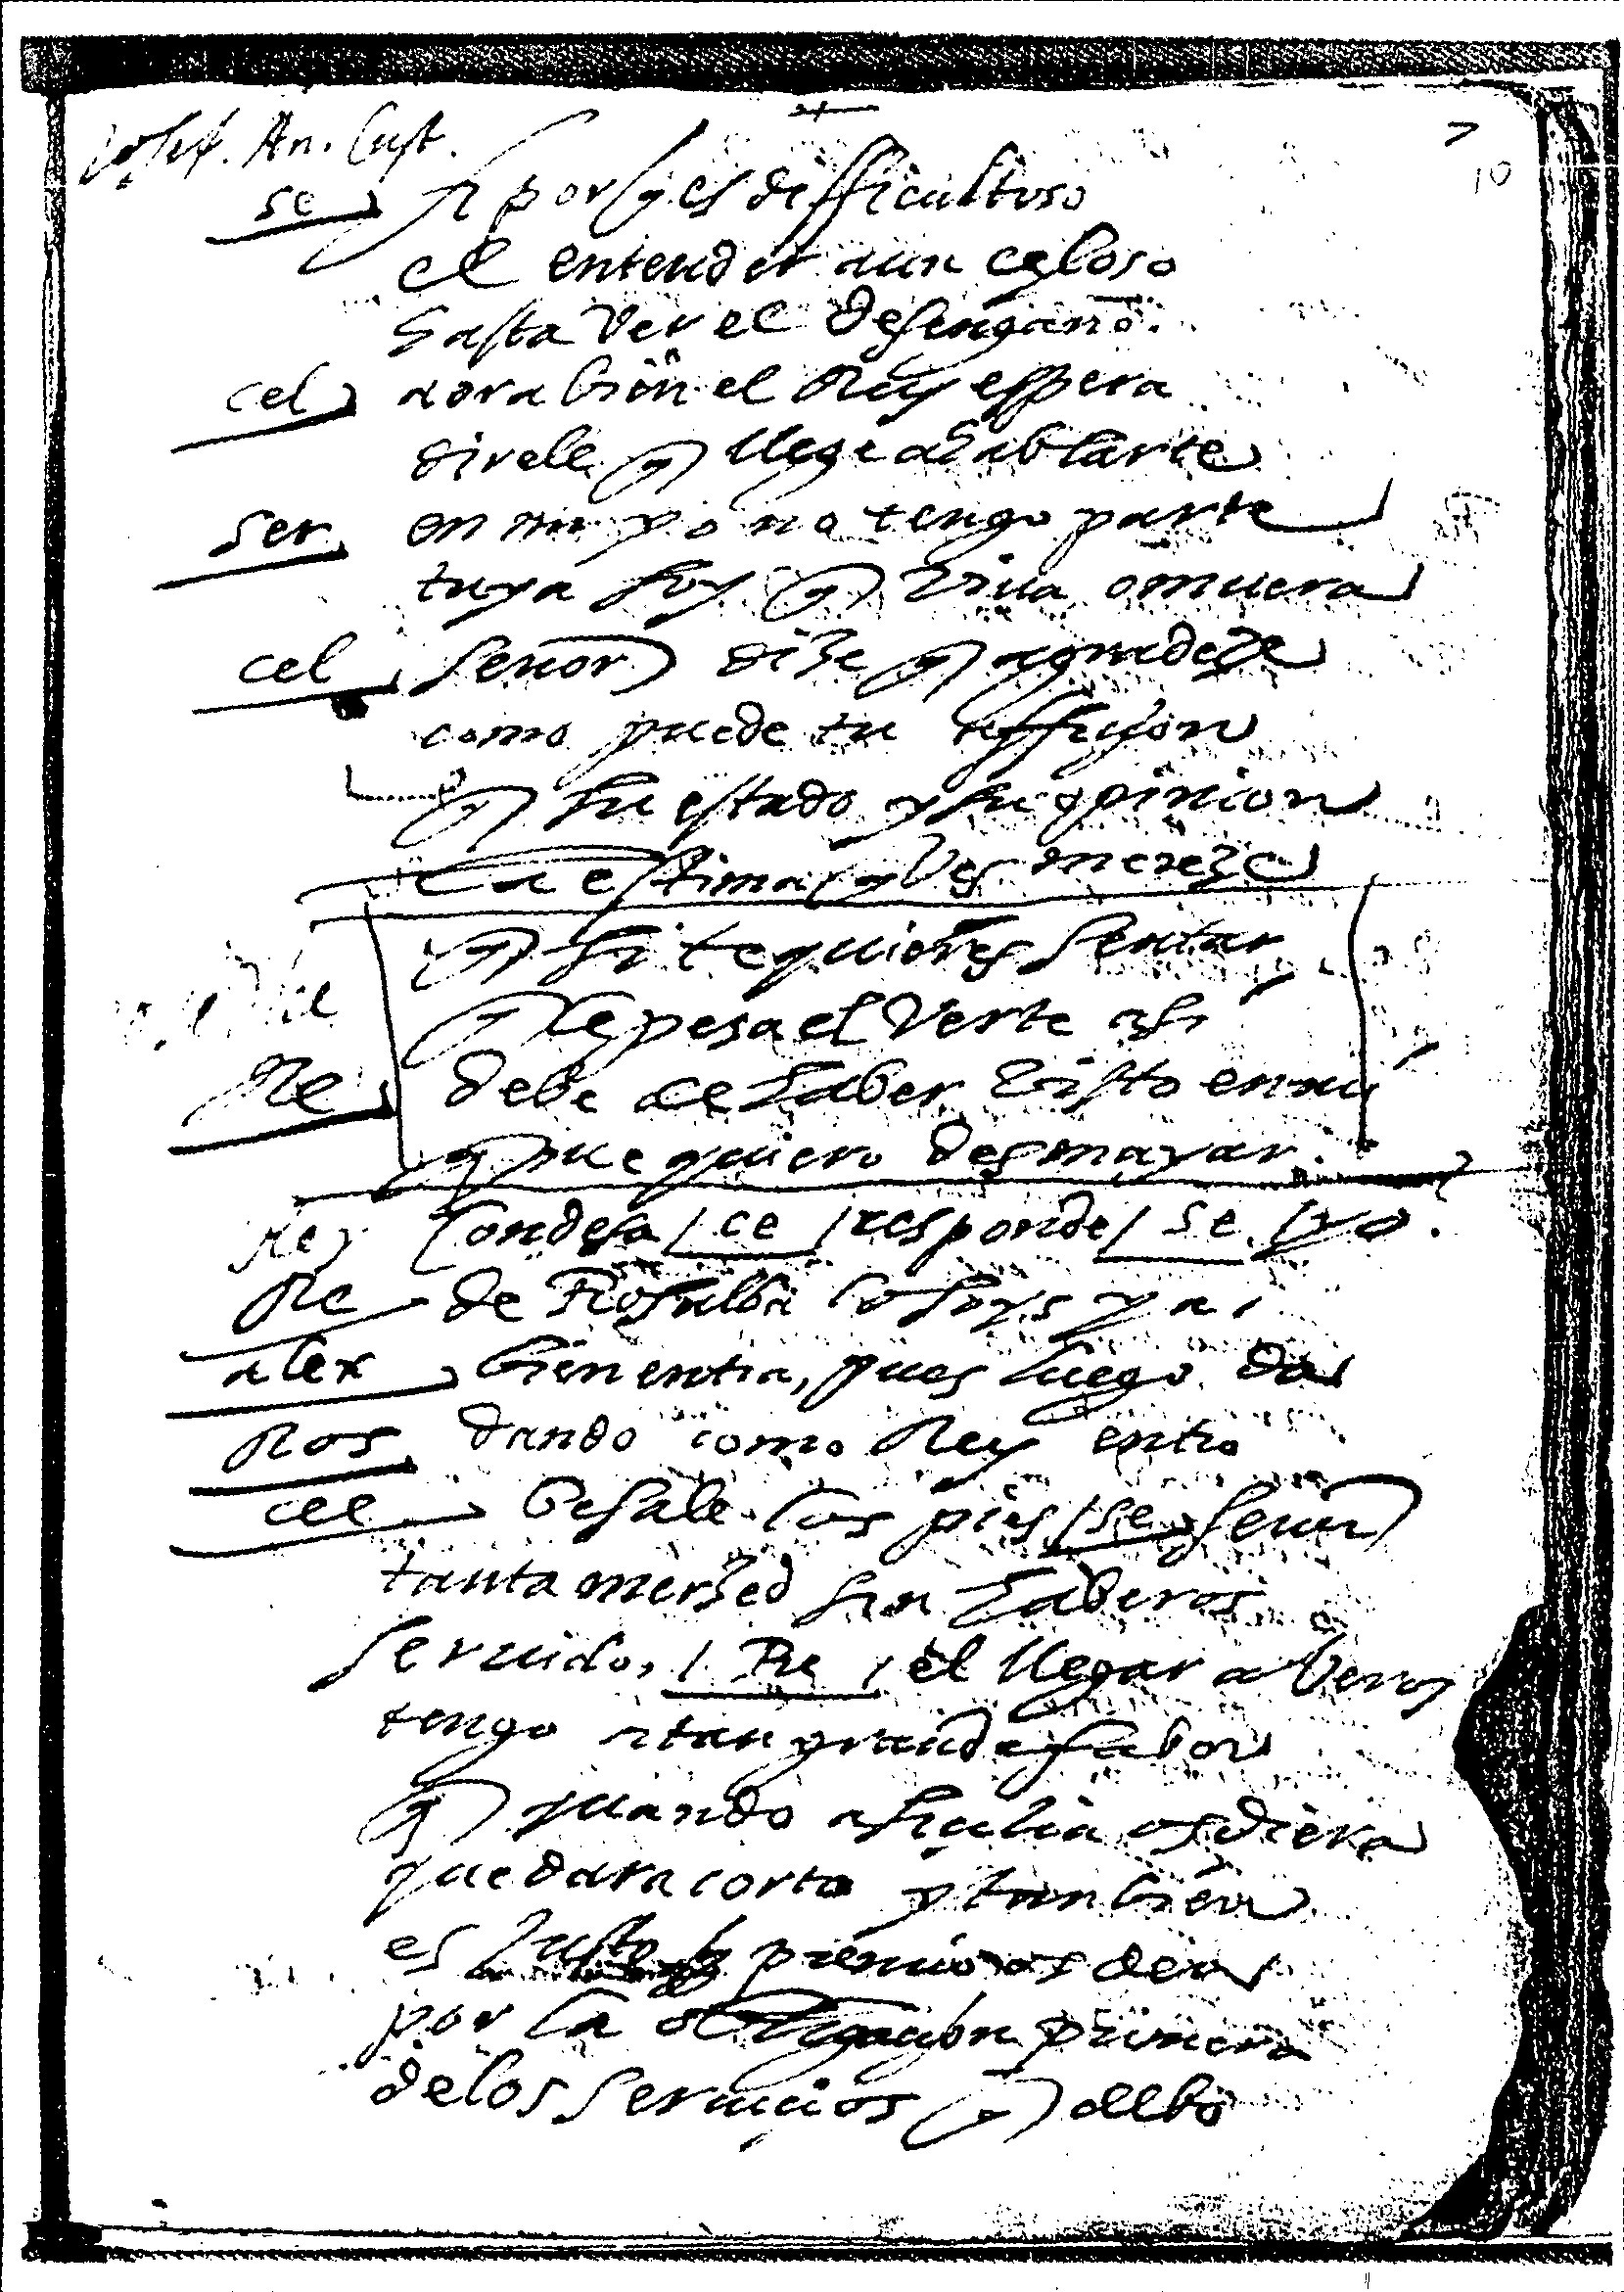 7
10
se si porq es difficultoso
el entender a un celoso
hasta ver el desengaño.
cel aora bien el Rey espera
direle q llege a hablarte
ser en mi yo no tengo parte
tuya soy q viua o muera
cel señor dize q agradeze
como puede tu affision
q su estado y su opinion
la estima q ves mereze
q si te quieres sentar
q le pesa el verte asi
Re debe de haber visto en mi
que quiero desmayar.
Rey Condesa / ce / responde / se / yo.
Re de Rosalba lo soys ya
alex bien entra, pues luego da
Ros dando como Rey entro
cel besale los pies / se / señor
tanta merzed sin haberos
seruido, / Re / el llegar a veros
tengo a tan grande fabor
q quando a sicilia os diera
quedara corto y tanbien
es justo q premio os den
por la obligacion primera
de los seruicios q debo